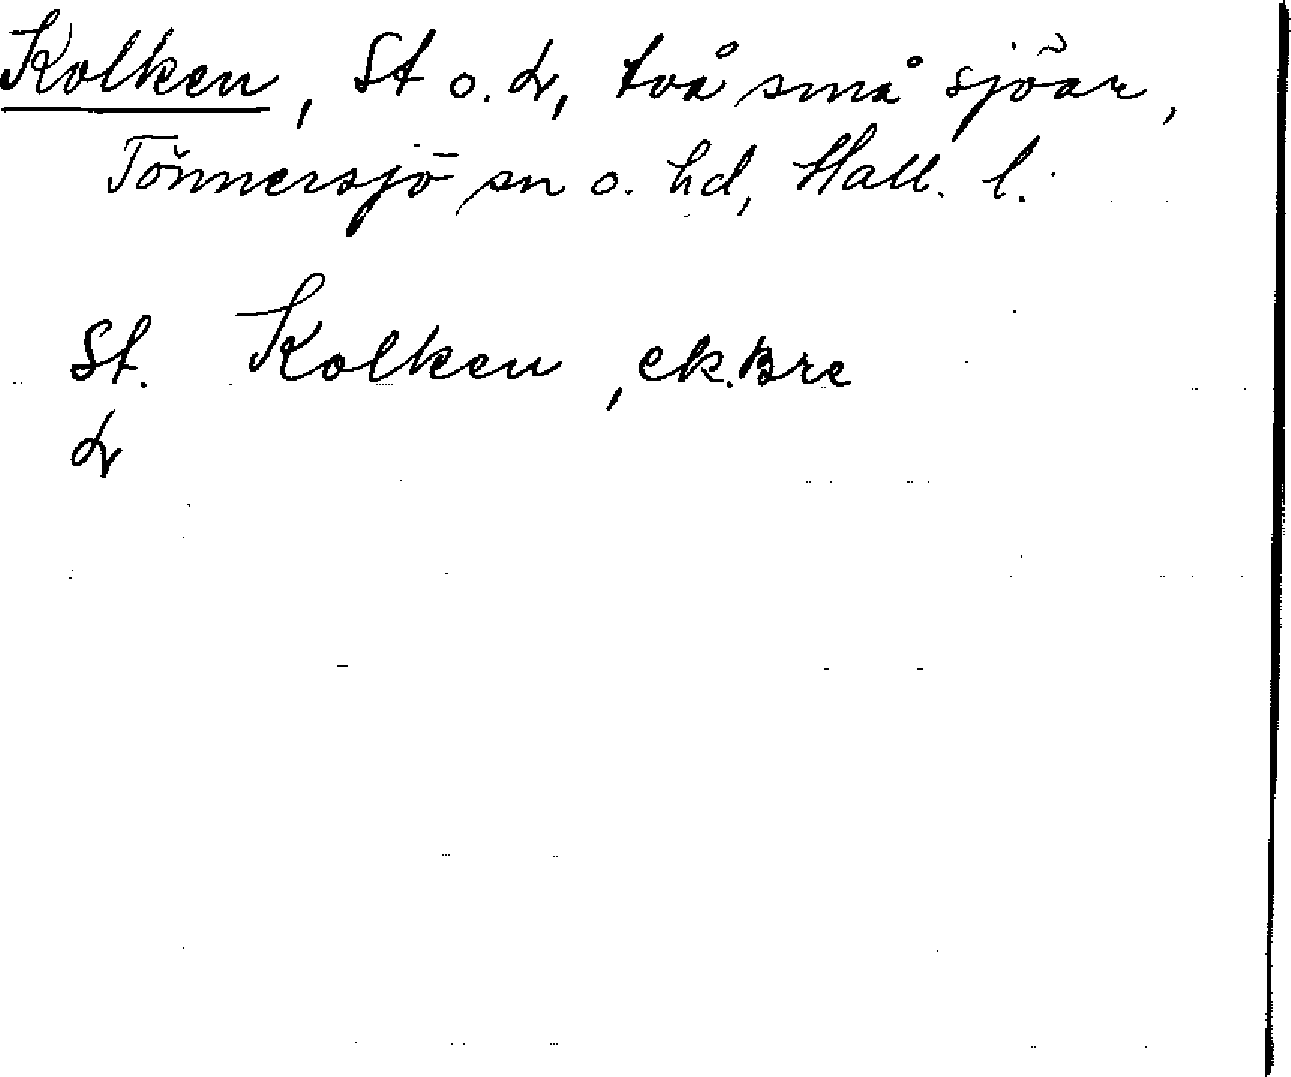 Kolken, St o. L, två små sjöar,
Tönnersjö sn o. hd, Hall. l.
St. Kolken, ek.Bre
L